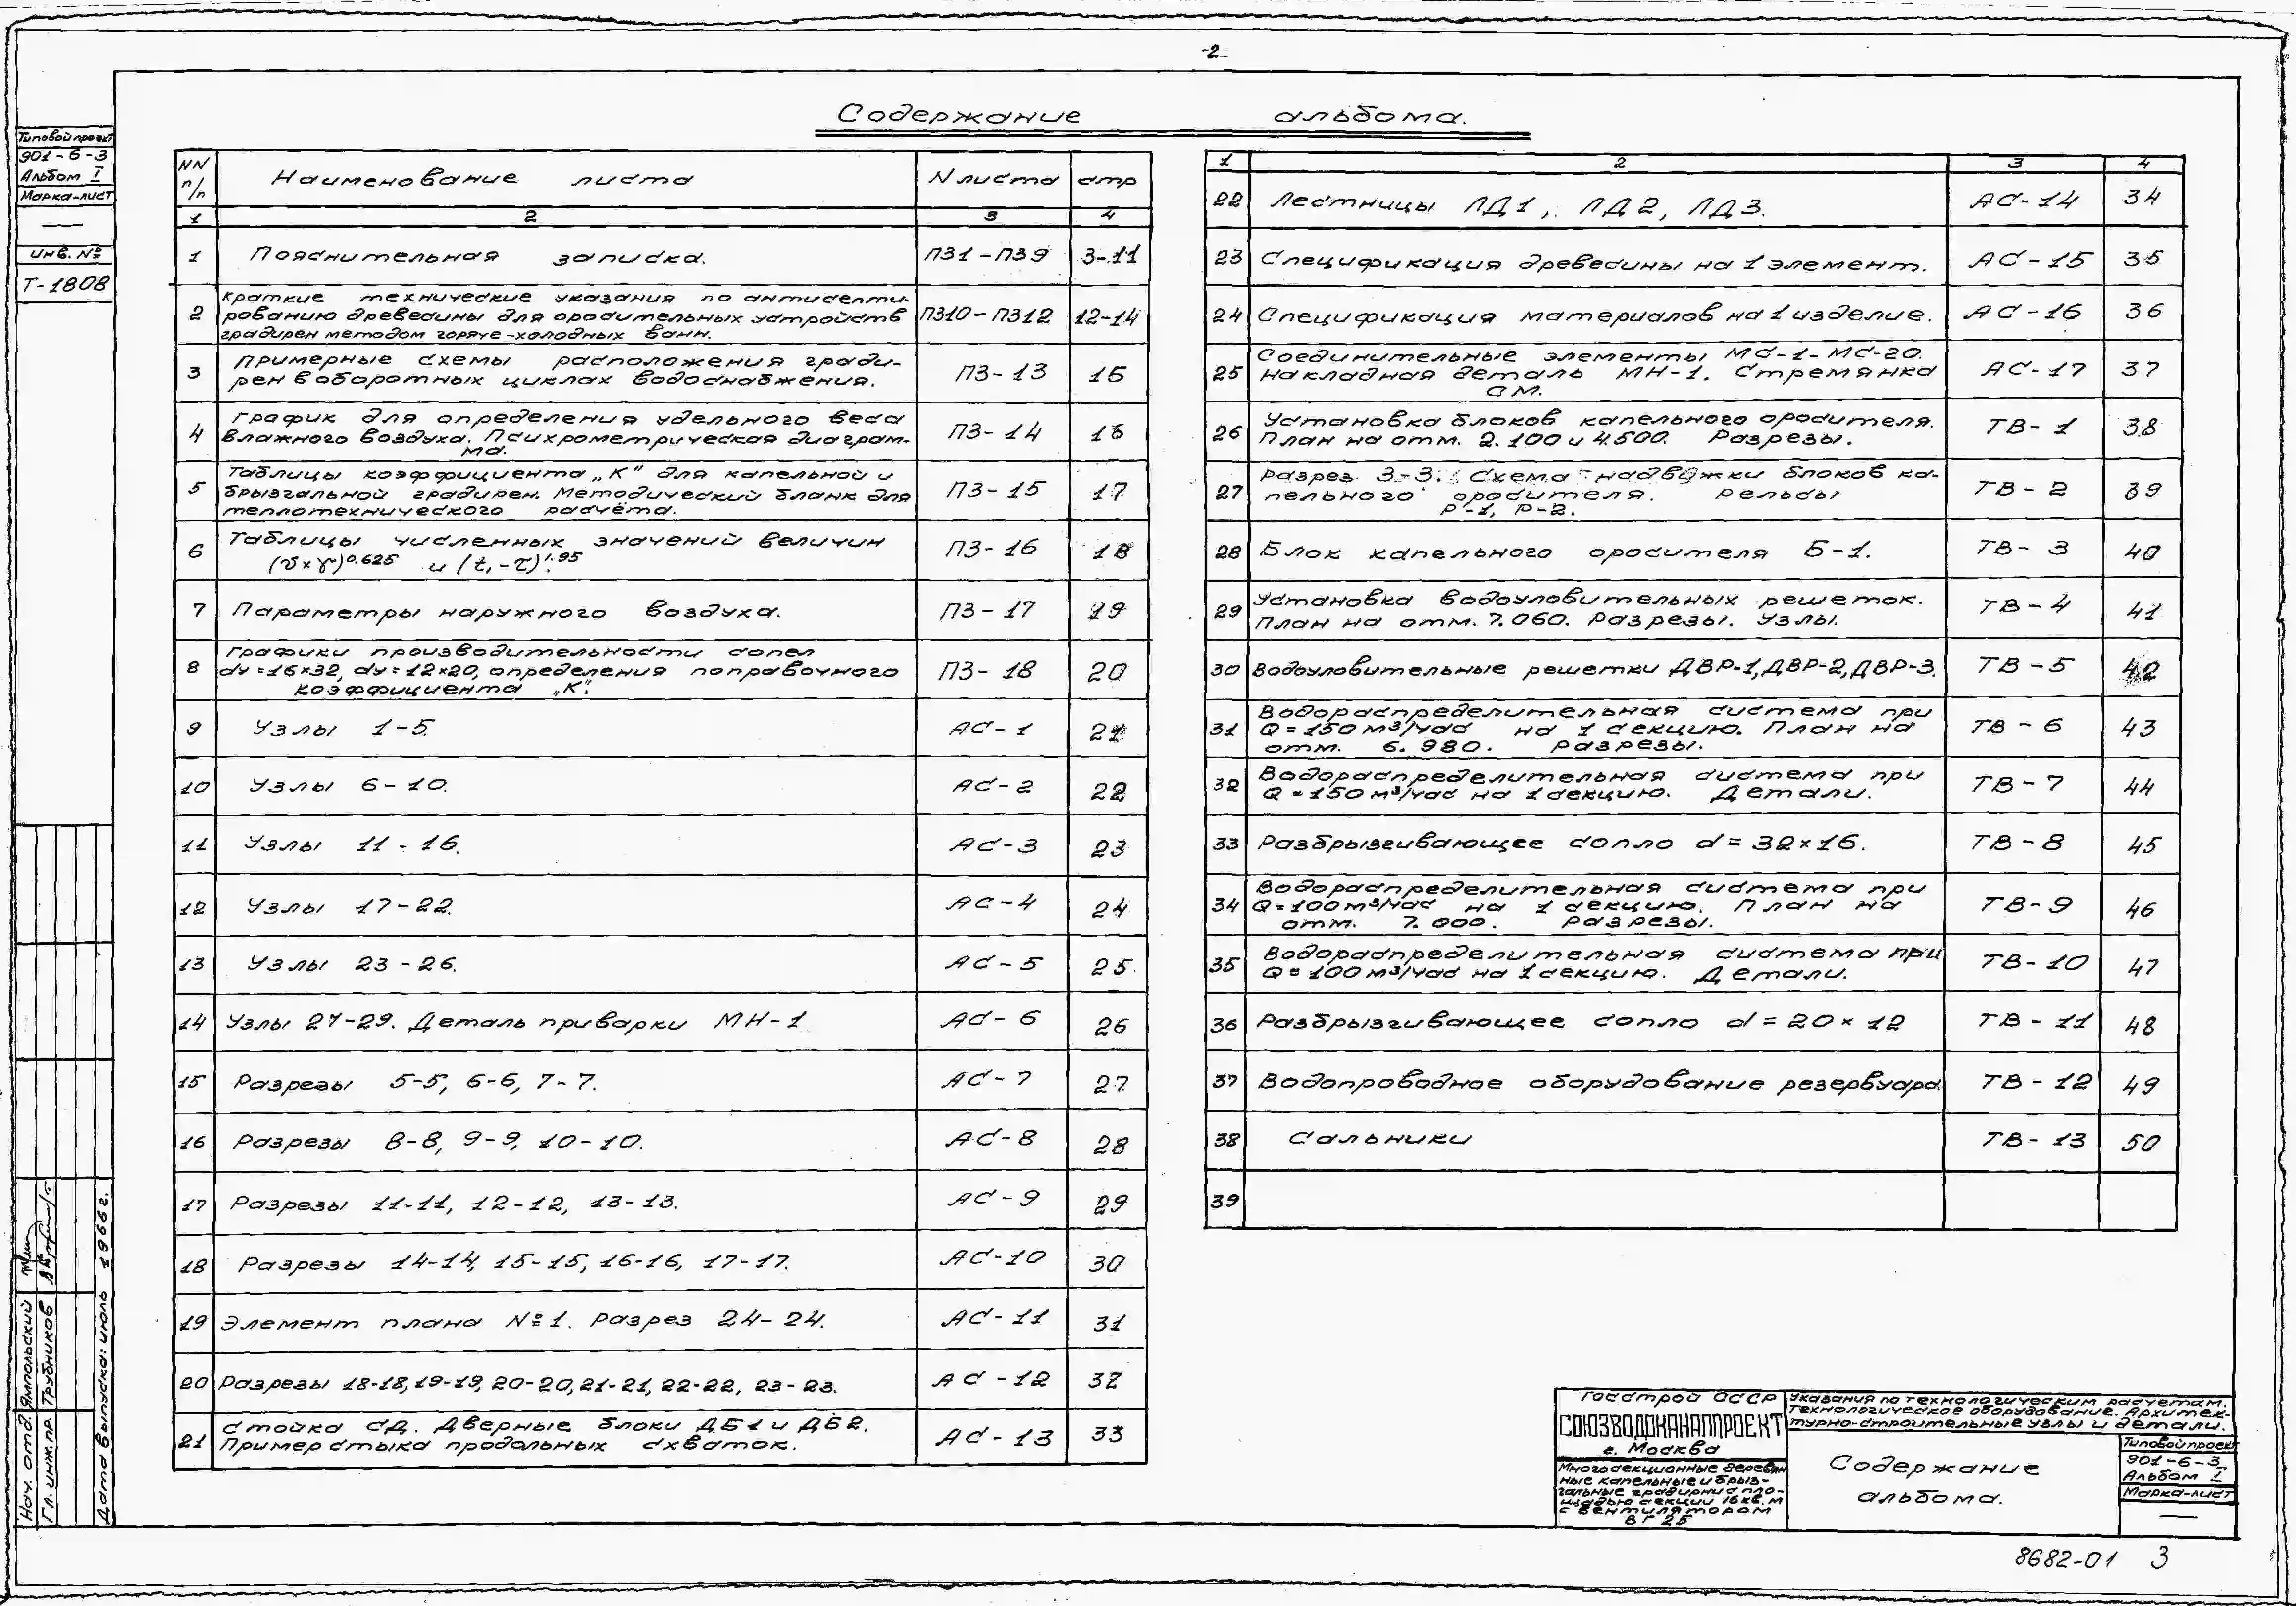 -2
Содержание альбома.
Типовой проект
901-6-3
Альбом I
Марка-лист
—
Инв. №
Т-1808
NN п/п Наименование листа N листа стр
1 2 3 4
1 Пояснительная записка. ПЗ1-ПЗ9 3-11
2 Краткие технические указания по антисепти-
рованию древесины для оросительных устройств ПЗ10-ПЗ12 12-14
градирен методом горяче-холодных ванн.
3 Примерные схемы расположения гради-
рен в оборотных циклах водоснабжения. ПЗ-13 15
4 График для определения удельного веса
влажного воздуха. Психрометрическая диаграм- ПЗ-14 16
ма.
5 Таблицы коэффициента „К" для капельной и
брызгальной градирен. Методический бланк для ПЗ-15 17
теплотехнического расчёта.
6 Таблицы численных значений величин ПЗ-16 18
(υ×γ)0.625 и (t₁-τ)1.95
7 Параметры наружного воздуха. ПЗ-17 19
8 Графики производительности сопел
dу=16×32, dу=12×20, определения поправочного ПЗ-18 20
коэффициента „К".
9 Узлы 1-5. АС-1 21
10 Узлы 6-10. АС-2 22
11 Узлы 11-16. АС-3 23
12 Узлы 17-22. АС-4 24
13 Узлы 23-26. АС-5 25
14 Узлы 27-29. Деталь приварки МН-1 АС-6 26
15 Разрезы 5-5, 6-6, 7-7. АС-7 27
16 Разрезы 8-8, 9-9, 10-10. АС-8 28
17 Разрезы 11-11, 12-12, 13-13. АС-9 29
18 Разрезы 14-14, 15-15, 16-16, 17-17. АС-10 30
19 Элемент плана №1. Разрез 24-24. АС-11 31
20 Разрезы 18-18, 19-19, 20-20, 21-21, 22-22, 23-23. АС-12 32
21 Стойка СД. Дверные блоки ДБ1 и ДБ2.
Пример стыка продольных схваток. АС-13 33
1 2 3 4
22 Лестницы ЛД1, ЛД2, ЛД3. АС-14 34
23 Спецификация древесины на 1 элемент. АС-15 35
24 Спецификация материалов на 1 изделие. АС-16 36
25 Соединительные элементы МС-1-МС-20.
Накладная деталь МН-1. Стремянка АС-17 37
СМ.
26 Установка блоков капельного оросителя.
План на отм. 2.100 и 4.500. Разрезы. ТВ-1 38
27 Разрез 3-3. Схема надвожки блоков ка-
пельного оросителя. Рельсы ТВ-2 39
Р-1, Р-2.
28 Блок капельного оросителя Б-1. ТВ-3 40
29 Установка водоуловительных решеток.
План на отм. 7.060. Разрезы. Узлы. ТВ-4 41
30 Водоуловительные решетки ДВР-1, ДВР-2, ДВР-3. ТВ-5 42
31 Водораспределительная система при
Q=150 м³/час на 1 секцию. План на ТВ-6 43
отм. 6.980. Разрезы.
32 Водораспределительная система при
Q=150 м³/час на 1 секцию. Детали. ТВ-7 44
33 Разбрызгивающее сопло d=32×16. ТВ-8 45
34 Водораспределительная система при
Q=100 м³/час на 1 секцию. План на ТВ-9 46
отм. 7.000. Разрезы.
35 Водораспределительная система при
Q=100 м³/час на 1 секцию. Детали. ТВ-10 47
36 Разбрызгивающее сопло d=20×12 ТВ-11 48
37 Водопроводное оборудование резервуара. ТВ-12 49
38 Сальники ТВ-13 50
39
Нач. отд. Ямпольский
Гл. инж. пр. Трубников
Дата выпуска: июль 1966 г.
Госстрой СССР
СОЮЗВОДОКАНАЛПРОЕКТ
г. Москва
Многосекционные деревян
ные капельные и брыз-
гальные градирни с пло-
щадью секции 16 кв. м
с вентилятором
ВГ 25
Указания по технологическим расчетам.
Технологическое оборудование. Архитек-
турно-строительные узлы и детали.
Содержание
альбома.
Типовой проект
901-6-3
Альбом I
Марка-лист
—
8682-01 3